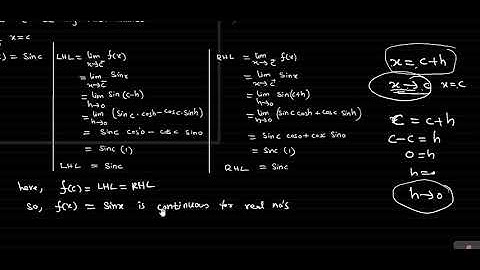 x=c
) = Sinc
LHL = lim x→c⁻ f(x)
= lim x→c⁻ Sinx
= lim h→0 Sin(c-h)
= lim h→0 (Sinc·cosh - cosc·sinh)
= Sinc cos0 - cosc sin0
= Sinc (1)
LHL = Sinc
RHL = lim x→c f(x)
= lim x→c Sinx
= lim h→0 Sin(c+h)
= lim h→0 (Sinc cosh + cosc sinh)
= Sinc cos0 + cosc Sin0
= Sinc (1)
RHL = Sinc
x = c+h
x→c x=c
c = c+h
c-c = h
0 = h
h =
h→0
here, f(c) = LHL = RHL
So, f(x) = Sinx is continuous for real no's